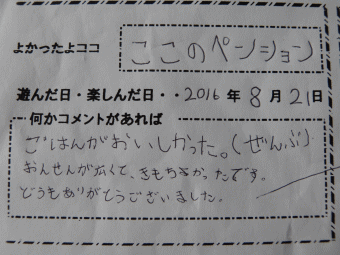 よかったよココ ここのペンション
遊んだ日・楽しんだ日・・2016年8月21日
何かコメントがあれば
ごはんがおいしかった。(ぜんぶ)
おんせんが広くて、きもちよかったです。
どうもありがとうございました。